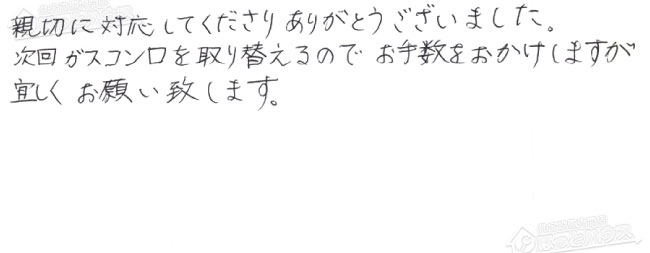 親切に対応してくださりありがとうございました。
次回ガスコンロを取り替えるので お手数をおかけしますが
宜しく お願い致します。